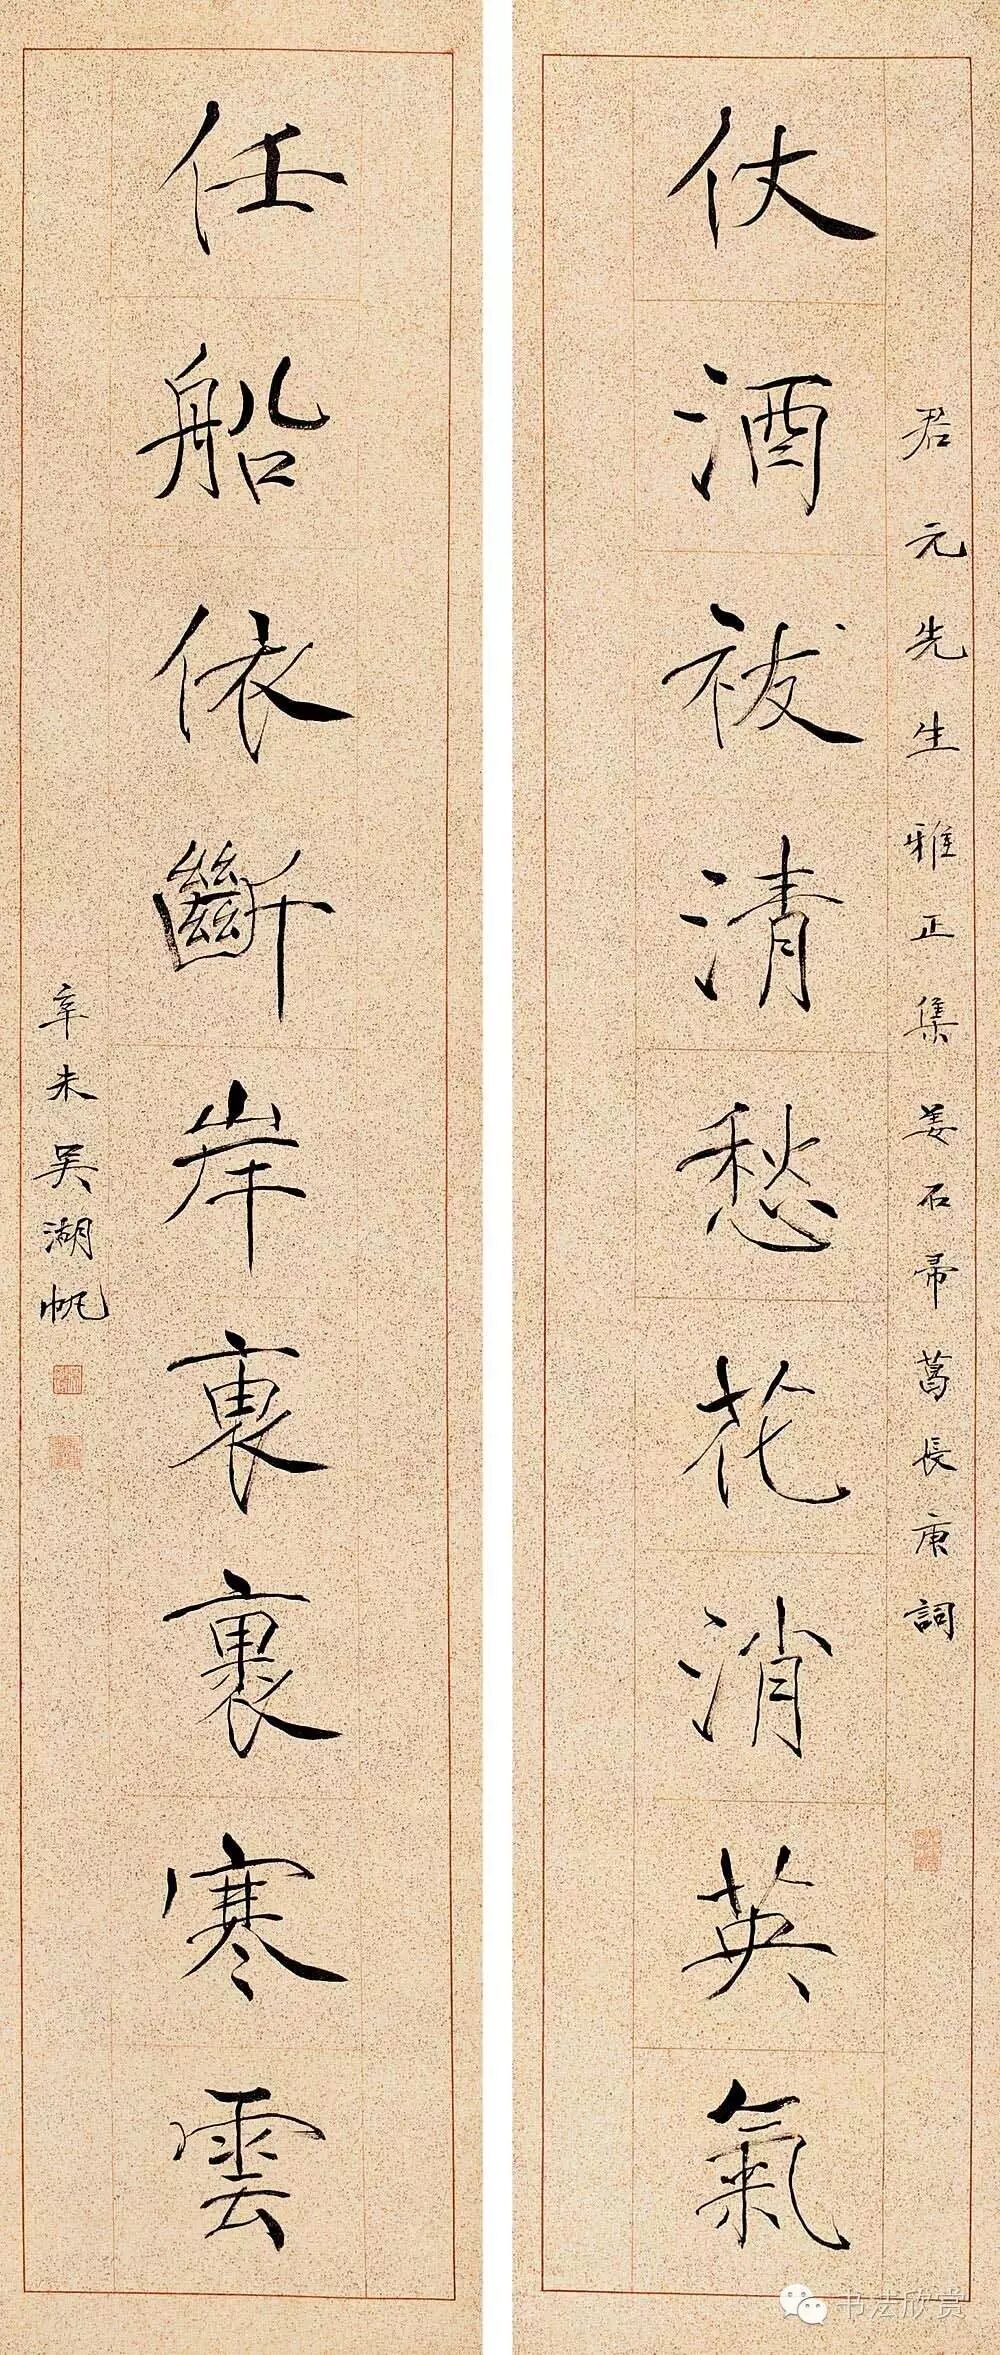 君元先生雅正集姜石帚葛長庚詞
仗酒祓清愁花消英氣
任船依斷岸袖裹寒雲
辛未吳湖帆
书法欣赏